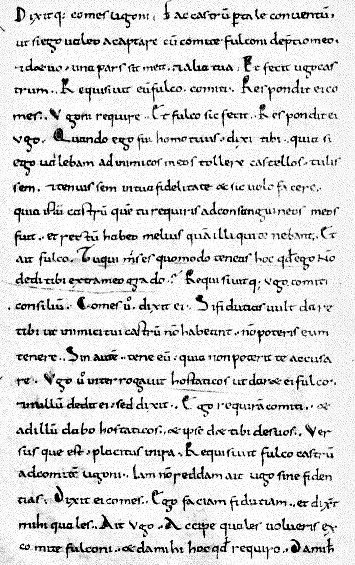 Dixitq; comes ugoni. Fac castrū p̄ tale conventū,
ut si ego valeo acaptare cū comite fulconi de p̄tio meo.
redavo. una pars sit mea. & alia tua. Et fecit ugo cas
trum. Requisivit eū fulco. comiti. Respondit ei co
mes. Ugoni require. Et fulco sic fecit. Respondit ei
ugo. Quando ego fui homo tuus. dixi tibi. quia si
ego valebam ad inimicos meos tollere castellos. tulis
sem. & tenuissem in tua fidelitate & sic volo facere.
quia istū castrū quē tu requiris ad consanguineos meos
fuit. et rectū habeo melius quā illi qui tenebant. Et
ait fulco. Tu qui m̄s es quomodo tenes hoc qđ ego nō
dedi tibi extra meo grado? Requisivitq; ugo comiti
consiliū. Comes ū dixit ei. Si fiducias vult dare
tibi ut inimici tui castrū nō habeant. nō poteris eum
tenere. Sin autē. tene eū. quia non poterit te accusa
re. Ugo ū interrogavit hostaticos ut daret ei fulco.
nullū dedit ei. sed dixit. Ego requirā comiti. &
ad illū dabo hostaticos. & ipse det tibi de suos. Ver
sus que est placitus in ira. Requisivit fulco castrū
ad comitē ugoni. Iam nō reddam ait ugo sine fiden
tias. Dixit ei comes. Ego faciam fiduciam. et dixit
mihi quales. Ait ugo. Accipe quales volueris ex
comite fulconi. & da mihi hoc qđ requiro. Da mihi